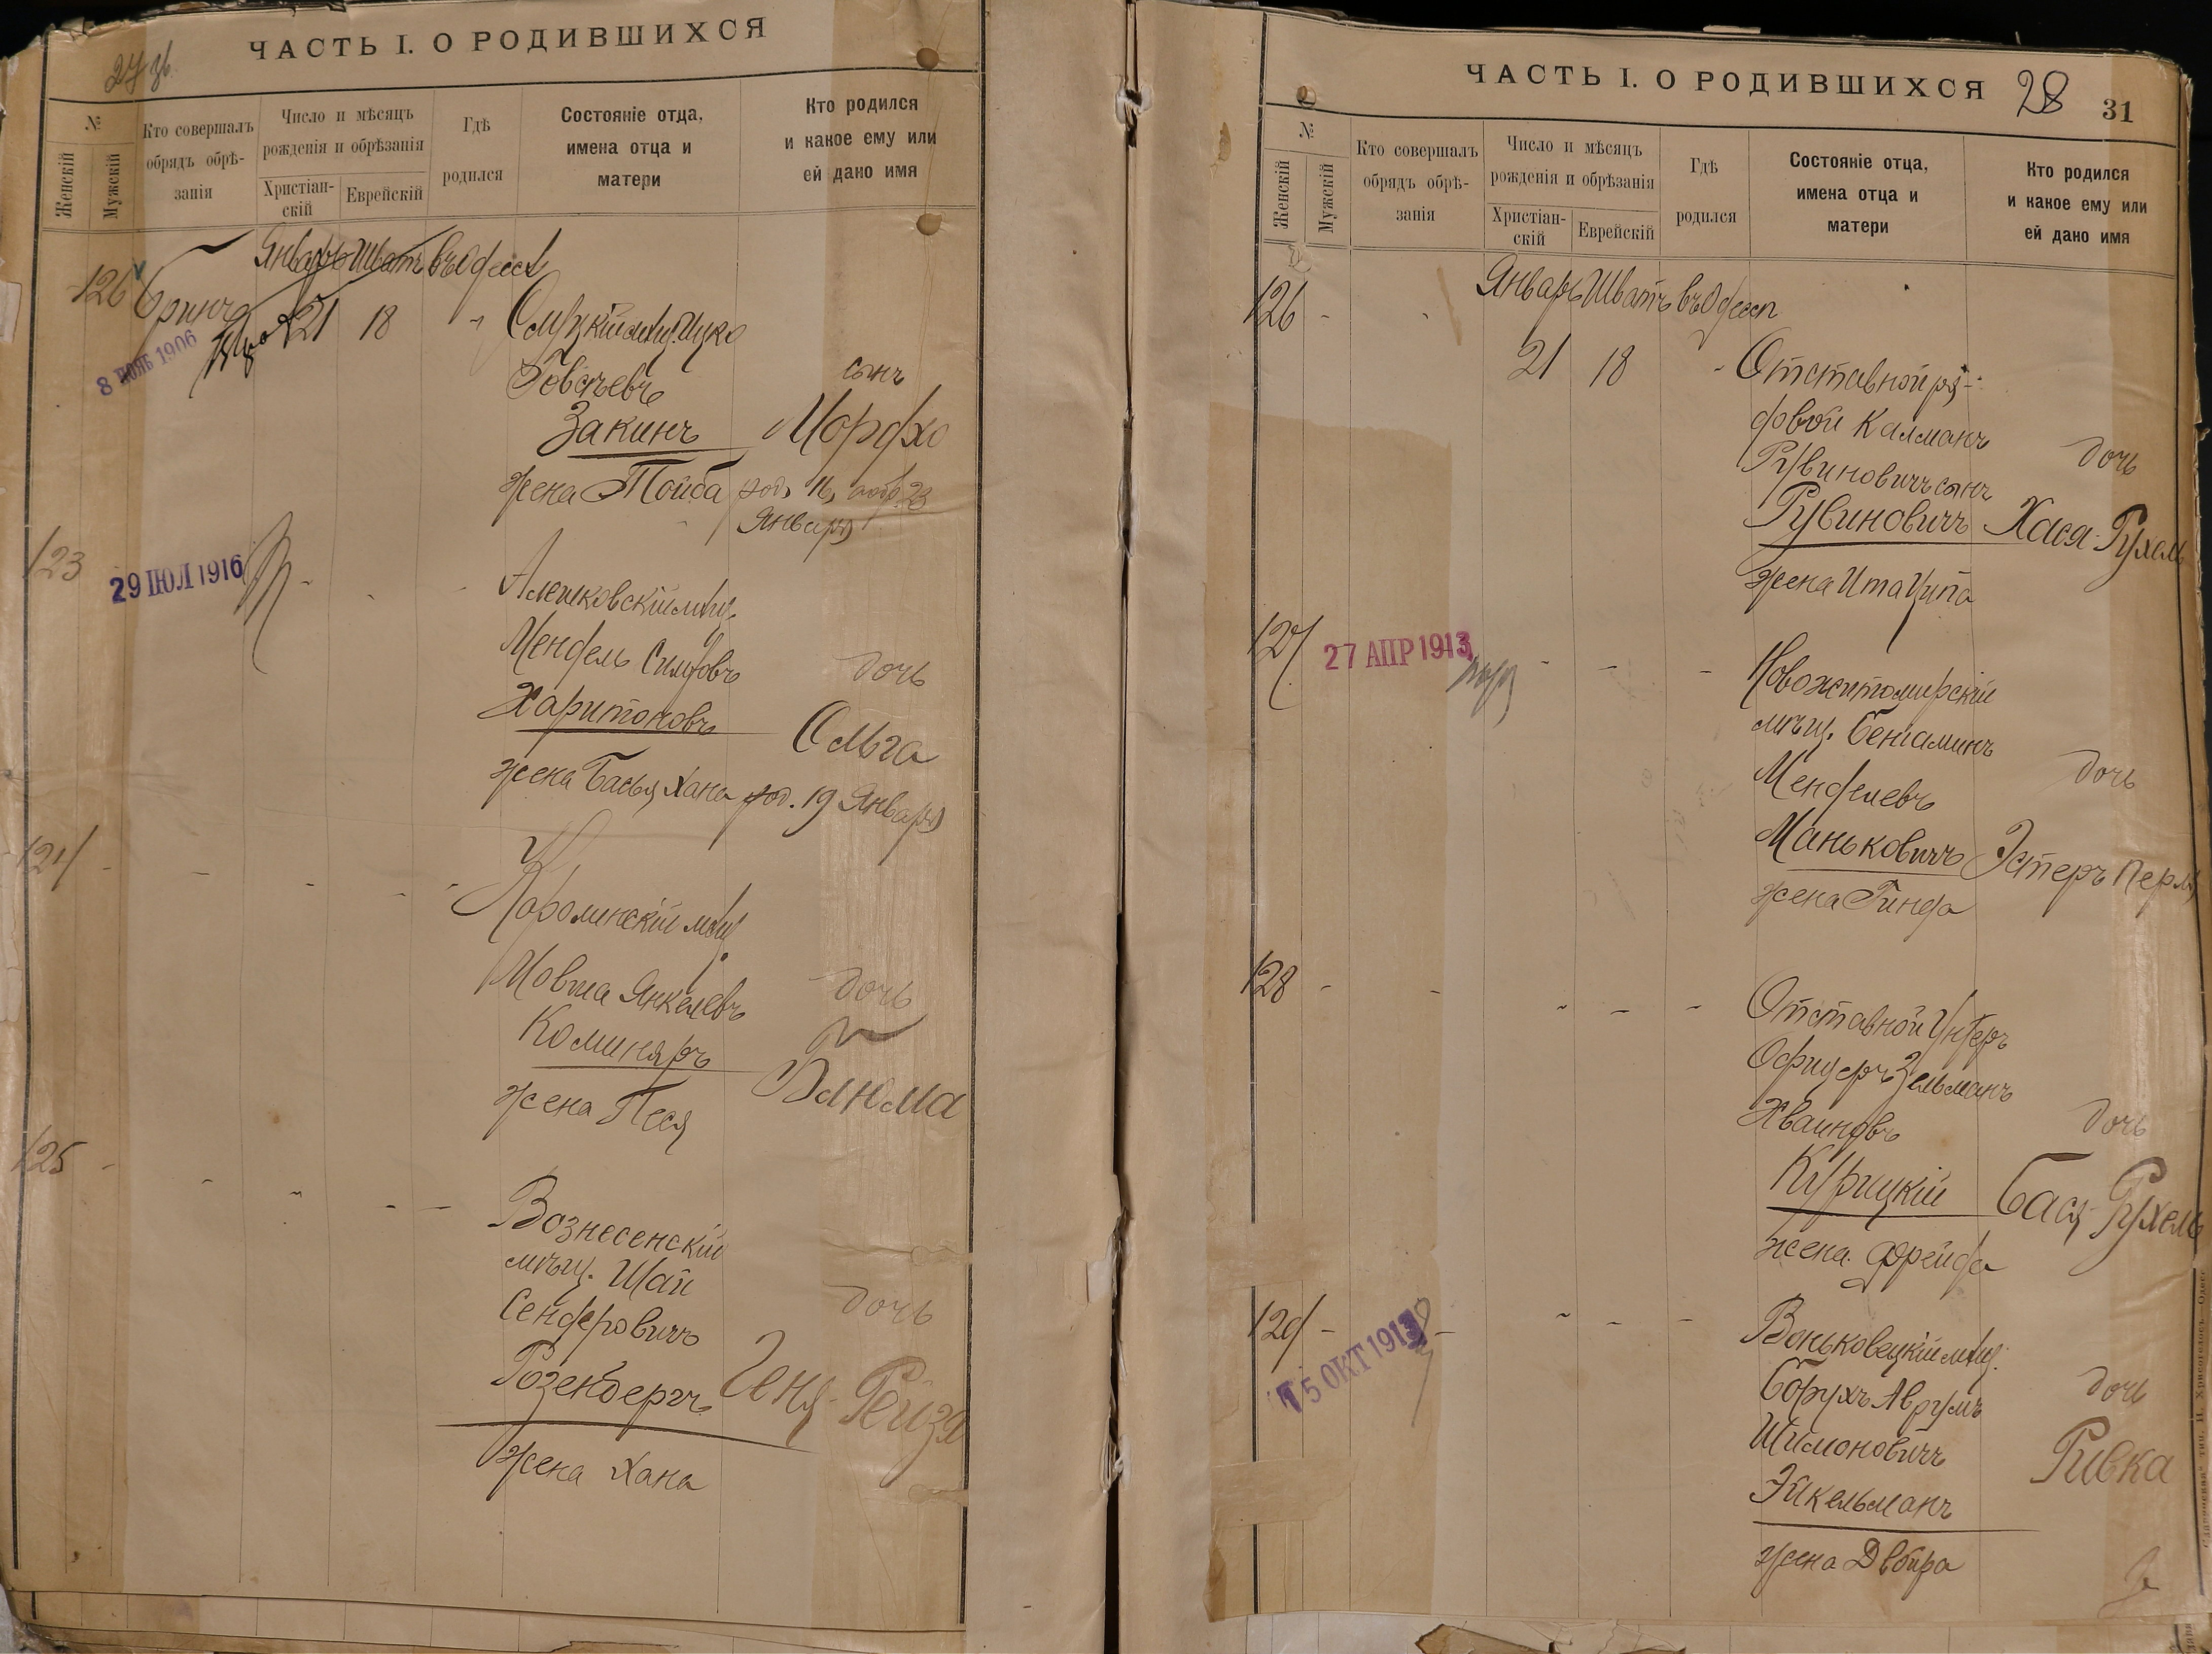 27 зв.
ЧАСТЬ I. О РОДИВШИХСЯ
№
Женскій
Мужскій
Кто совершалъ
обрядъ обрѣ-
занія
Число и мѣсяцъ
рожденія и обрѣзанія
Христіан-
скій
Еврейскій
Гдѣ
родился
Состояніе отца,
имена отца и
матери
Кто родился
и какое ему или
ей дано имя
Январь Шватъ въ Одессѣ
126
21 18
Слуцкій мѣщ. Ицко
8 НОЯБ 1906
Говсѣевъ
сынъ
Закинъ
Мордхо
жена Тойба
род. 16, 23
Января
123
29 ІЮЛ 1916
Алешковскій мѣщ.
Мендель
дочь
Харитоновъ
Ольга
жена Бася Хана
род. 19 Января
124
Каролинскій мѣщ.
Мовша Янкелевъ
дочь
Коминяръ
Блюма
жена Песя
125
Вознесенскій
мѣщ. Шай
Сендеровичъ
дочь
Розенбергъ
Геня-Рейзя
жена Хана
ЧАСТЬ I. О РОДИВШИХСЯ
28
31
№
Женскій
Мужскій
Кто совершалъ
обрядъ обрѣ-
занія
Число и мѣсяцъ
рожденія и обрѣзанія
Христіан-
скій
Еврейскій
Гдѣ
родился
Состояніе отца,
имена отца и
матери
Кто родился
и какое ему или
ей дано имя
Январь Шватъ въ Одессѣ
126
21 18
Отставной ря-
довой Калманъ
дочь
Рувиновичъ сынъ
Рувиновичъ
Хася-Рухель
жена Ита Ципа
127
27 АПР 1913
Новожитомирскій
мѣщ. Беніаминъ
Менделевъ
дочь
Маньковичъ
Эстеръ Перля
жена Гинда
128
Отставной Унтеръ
Офицеръ Зельманъ
дочь
Курицкій
Бася-Рухель
жена Фрейда
129
15 ОКТ 1913
Воньковецкій мѣщ.
Борухъ Аврумъ
дочь
Шимоновичъ
Ривка
Эйкельманъ
жена Двойра